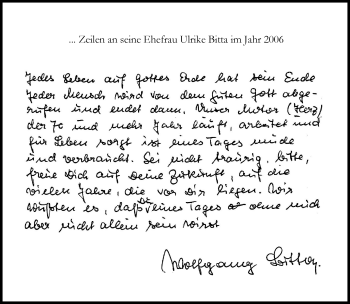 ... Zeilen an seine Ehefrau Ulrike Bitta im Jahr 2006
Jedes Leben auf Gottes Erde hat sein Ende
Jeder Mensch wird von dem guten Gott abge-
rufen und endet dann. Unser Motor (Herz)
der 70 und mehr Jahr läuft, arbeitet und
für Leben sorgt ist eines Tages müde
und verbraucht. Sei nicht traurig, bitte,
freue Dich auf Deine Zukunft, auf die
vielen Jahre, die vor Dir liegen. Wir
wußten es, daß Du eines Tages ohne mich
aber nicht allein sein wirst
Wolfgang Bitta.